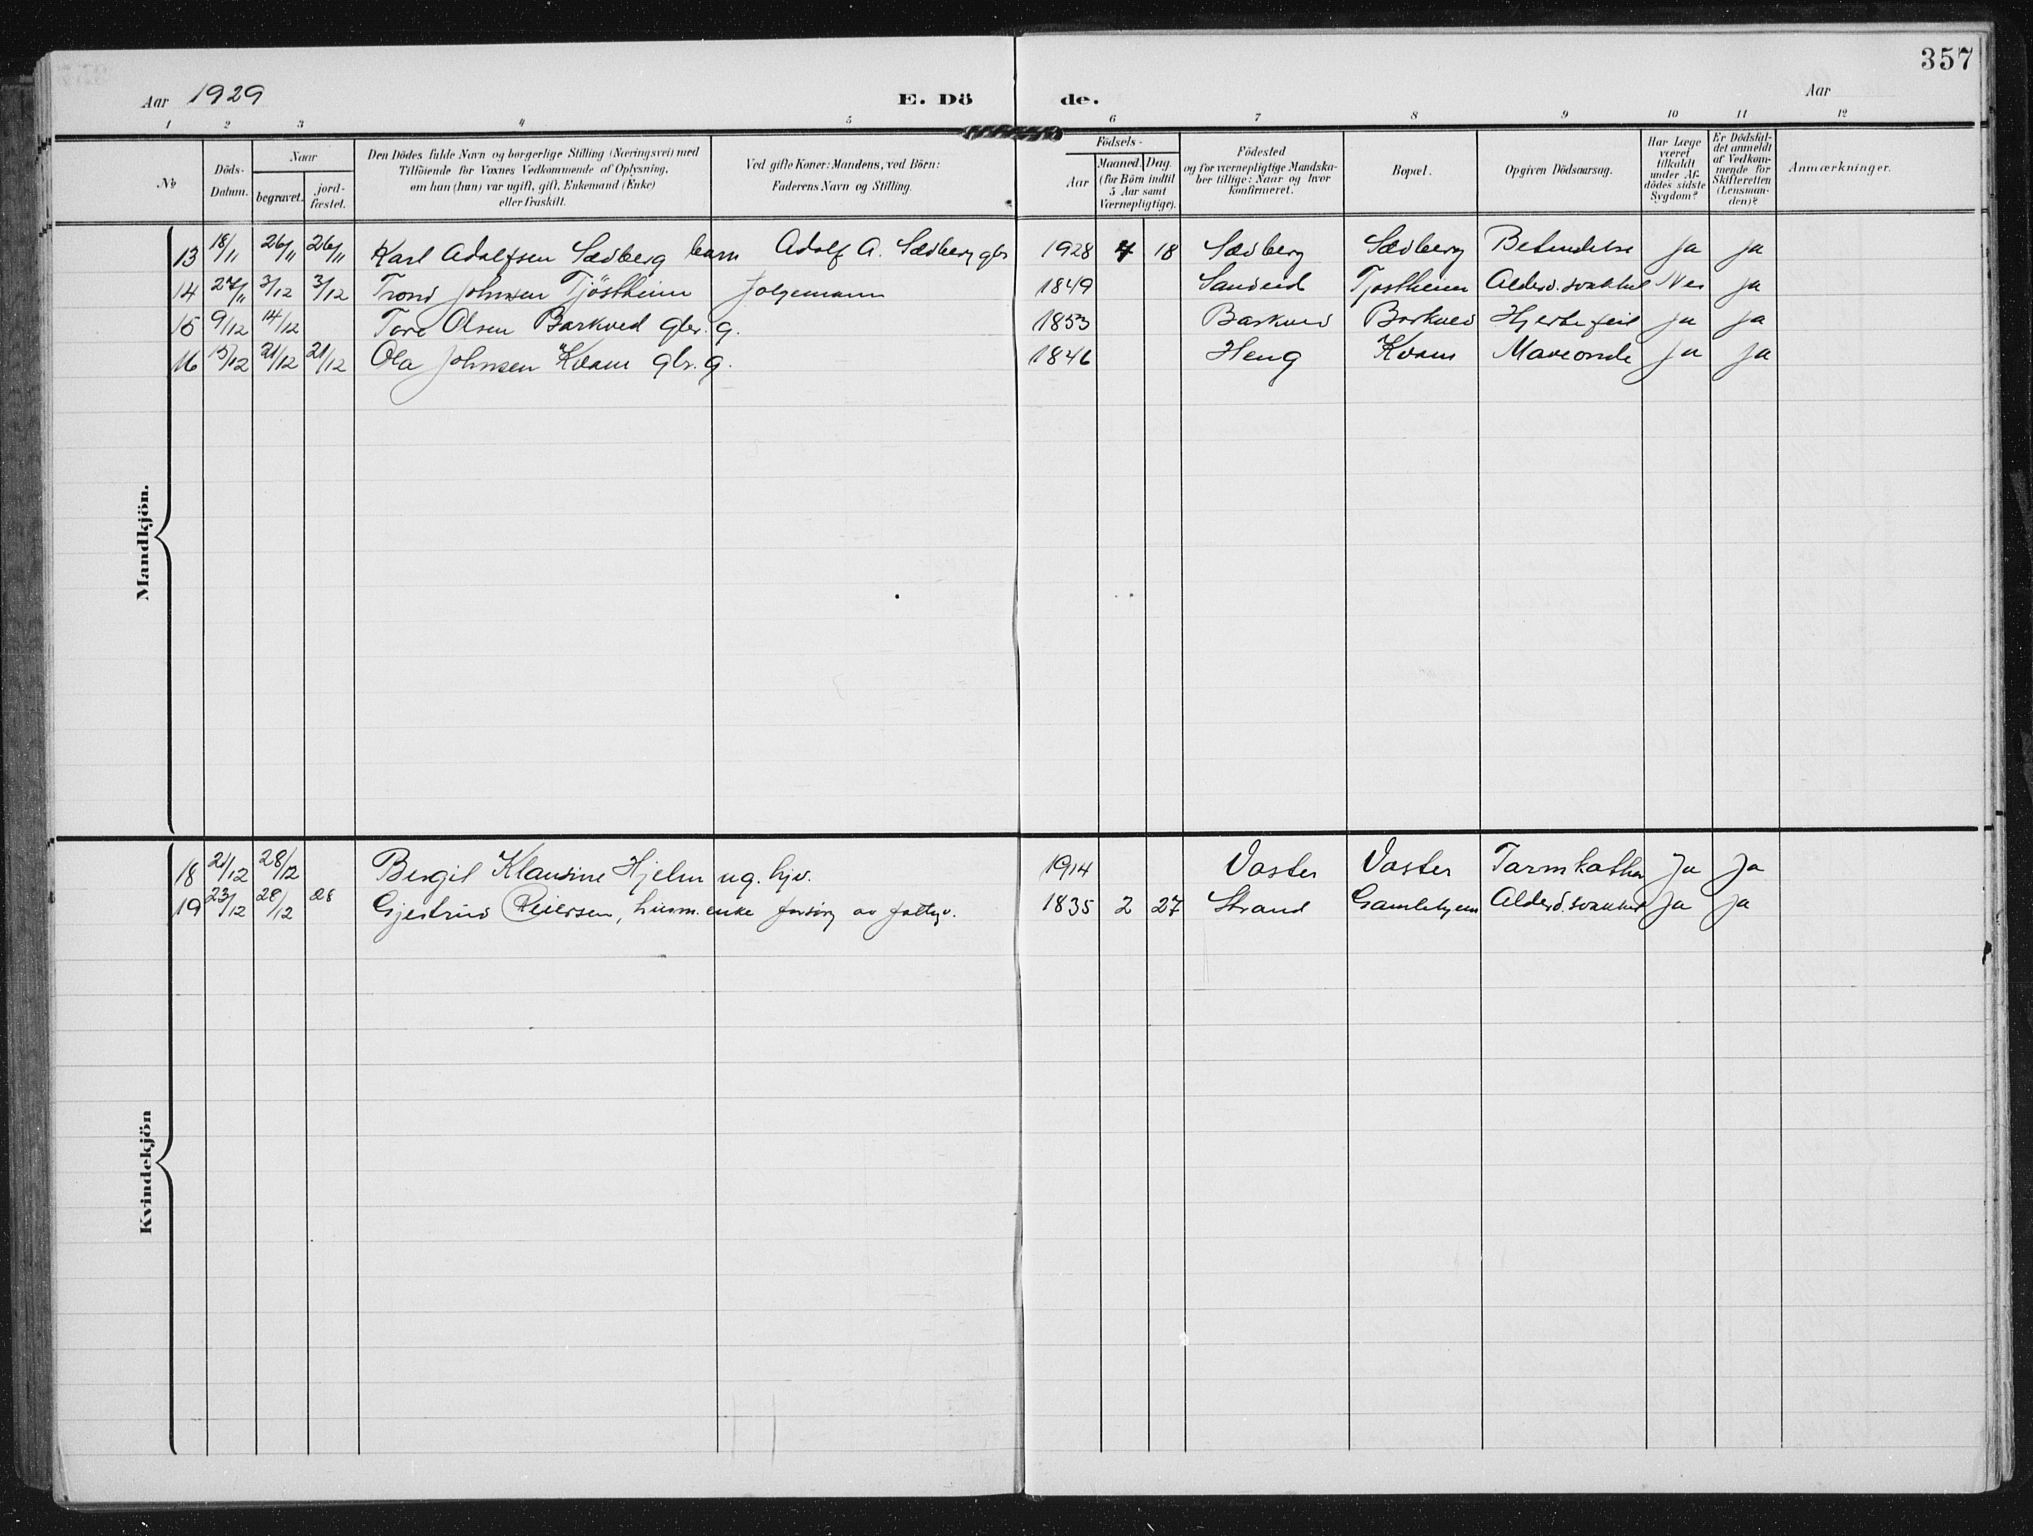 357
Aar 1929 E. Dö de. Aar
1 2 3 4 5 6 7 8 9 10 11 12
No
Döds-Datum.
Naar
begravet.
jord-fæstet.
Den Dödes fulde Navn og borgerlige Stilling (Næringsvei) med
Tilföiende for Voxnes Vedkommende af Oplysning,
om han (hun) var ugift, gift, Enkemand (Enke)
eller fraskilt.
Ved gifte Koner: Mandens, ved Börn:
Faderens Navn og Stilling.
Födsels-
Aar
Maaned. Dag.
(for Börn indtil
5 Aar samt
Værnepligtige).
Födested
og for værnepligtige Mandska-
ber tillige: Naar og hvor
Konfirmeret.
Bopæl.
Opgiven Dödsaarsag.
Har Læge
været
tilkaldt
under Af-
dödes sidste
Sygdom?
Er Dödsfal-
det anmeldt
af Vedkom-
mende for
Skifteretten
(Lensman-
den)?
Anmærkninger.
Mandkjön.
13 18/11 26/11 26/11 Karl Adolfsen Sædberg barn Adolf A. Sædberg gbr 1928 4 18 Sædberg Sædberg Betendelse Ja Ja
14 27/11 3/12 3/12 Trond Johnsen Tjöstheim Folgemann 1849 Sandeid Tjostheim Alderd.svakhet Nei Ja
15 9/12 14/12 Tore Olsen Barkved gbr. g. 1853 Barkved Barkved Hjertefeil Ja Ja
16 15/12 21/12 21/12 Ola Johnsen Kvam gbr. g. 1846 Heng Kvam Maveonde Ja Ja
Kvindekjön
18 21/12 28/12 Bergit Klausine Hjelm ug. hjv. 1914 Vaster Vaster Tarmkathar Ja Ja
19 23/12 28/12 28 Gjestrud Reiersen, husm.enke forsörg av fattigv. 1835 2 27 Strand Gamlehjem Alderd.svakhet Ja Ja